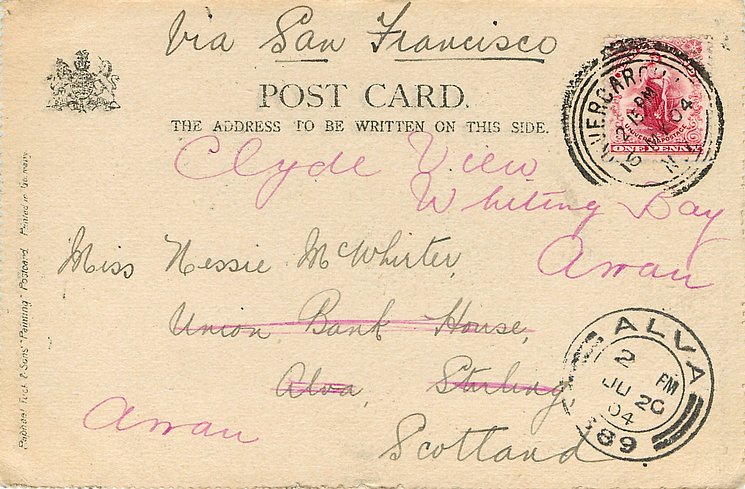 Via San Francisco
POST CARD.
THE ADDRESS TO BE WRITTEN ON THIS SIDE.
INVERCARGILL
2 15 PM
15 MY 04
N.Z
UNIVERSAL POSTAGE
ONE PENNY
Clyde View
Whiting Bay
Arran
Miss Nessie McWhirter,
Union Bank House,
Alva, Stirling
Scotland
Arran
ALVA
2 PM
JU 20
04
389
Raphael Tuck & Sons' "Painting" Postcard Printed in Germany